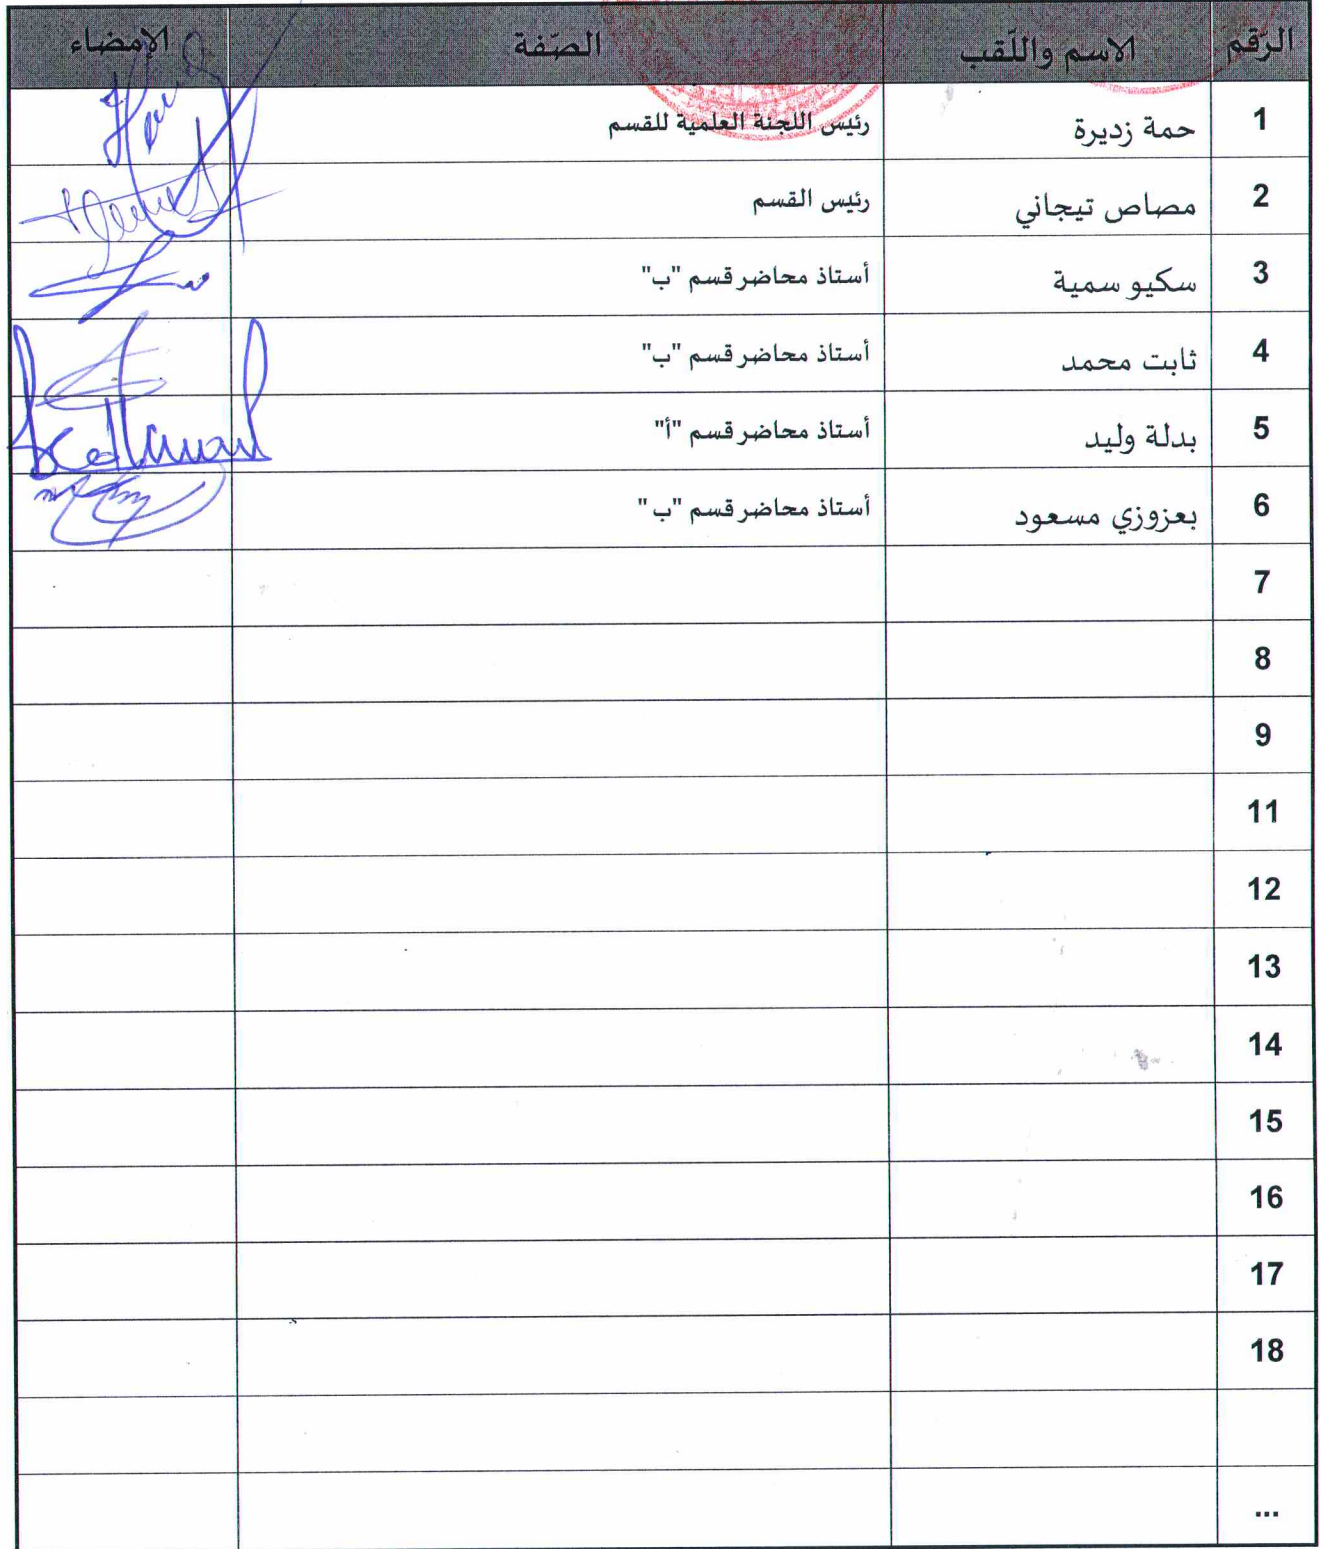 الرّقم الاسم واللّقب الصّفة الإمضاء
1 حمة زديرة رئيس اللجنة العلمية للقسم
2 مصاص تيجاني رئيس القسم
3 سكيو سمية أستاذ محاضر قسم "ب"
4 ثابت محمد أستاذ محاضر قسم "ب"
5 بدلة وليد أستاذ محاضر قسم "أ"
6 بعزوزي مسعود أستاذ محاضر قسم "ب"
7
8
9
11
12
13
14
15
16
17
18
...